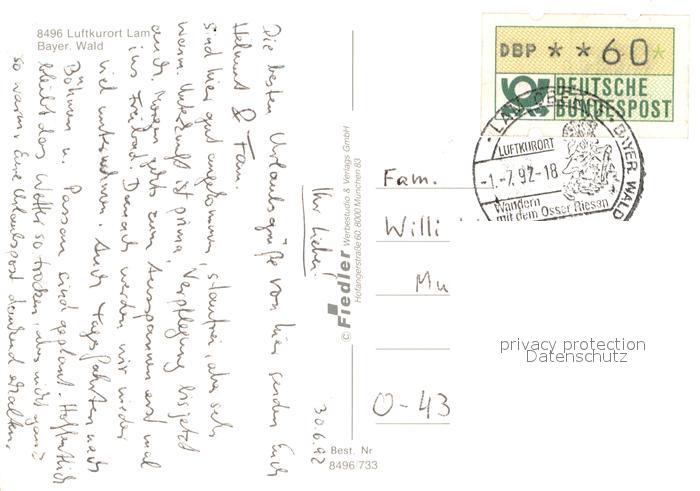 8496 Luftkurort Lam
Bayer. Wald
30.6.92
Ihr Lieben!
Die besten Urlaubsgrüße von hier senden Euch
Helmut & Fam.
sind hier gut angekommen, staufrei, aber sehr
warm. Unterkunft ist prima, Verpflegung bis jetzt
auch. Morgen geht's zum Ausspannen erst mal
ins Freibad. Danach werden wir wieder
viel unternehmen. Auch Tagesfahrten nach
Böhmen u. Passau sind geplant. Hoffentlich
bleibt das Wetter so trocken, nur nicht ganz
so warm. Eure Urlaubspost dankend erhalten.
© Fiedler Werbestudio & Verlags GmbH
Hofangerstraße 60, 8000 München 83
Best. Nr
8496/733
DBP * * 60 *
DEUTSCHE
BUNDESPOST
LAM, OBERPF · BAYER. WALD
LUFTKURORT
-1.-7.92-18
Wandern
mit dem Osser Riesen
Fam.
Willi
Mu
O-43
privacy protection
Datenschutz